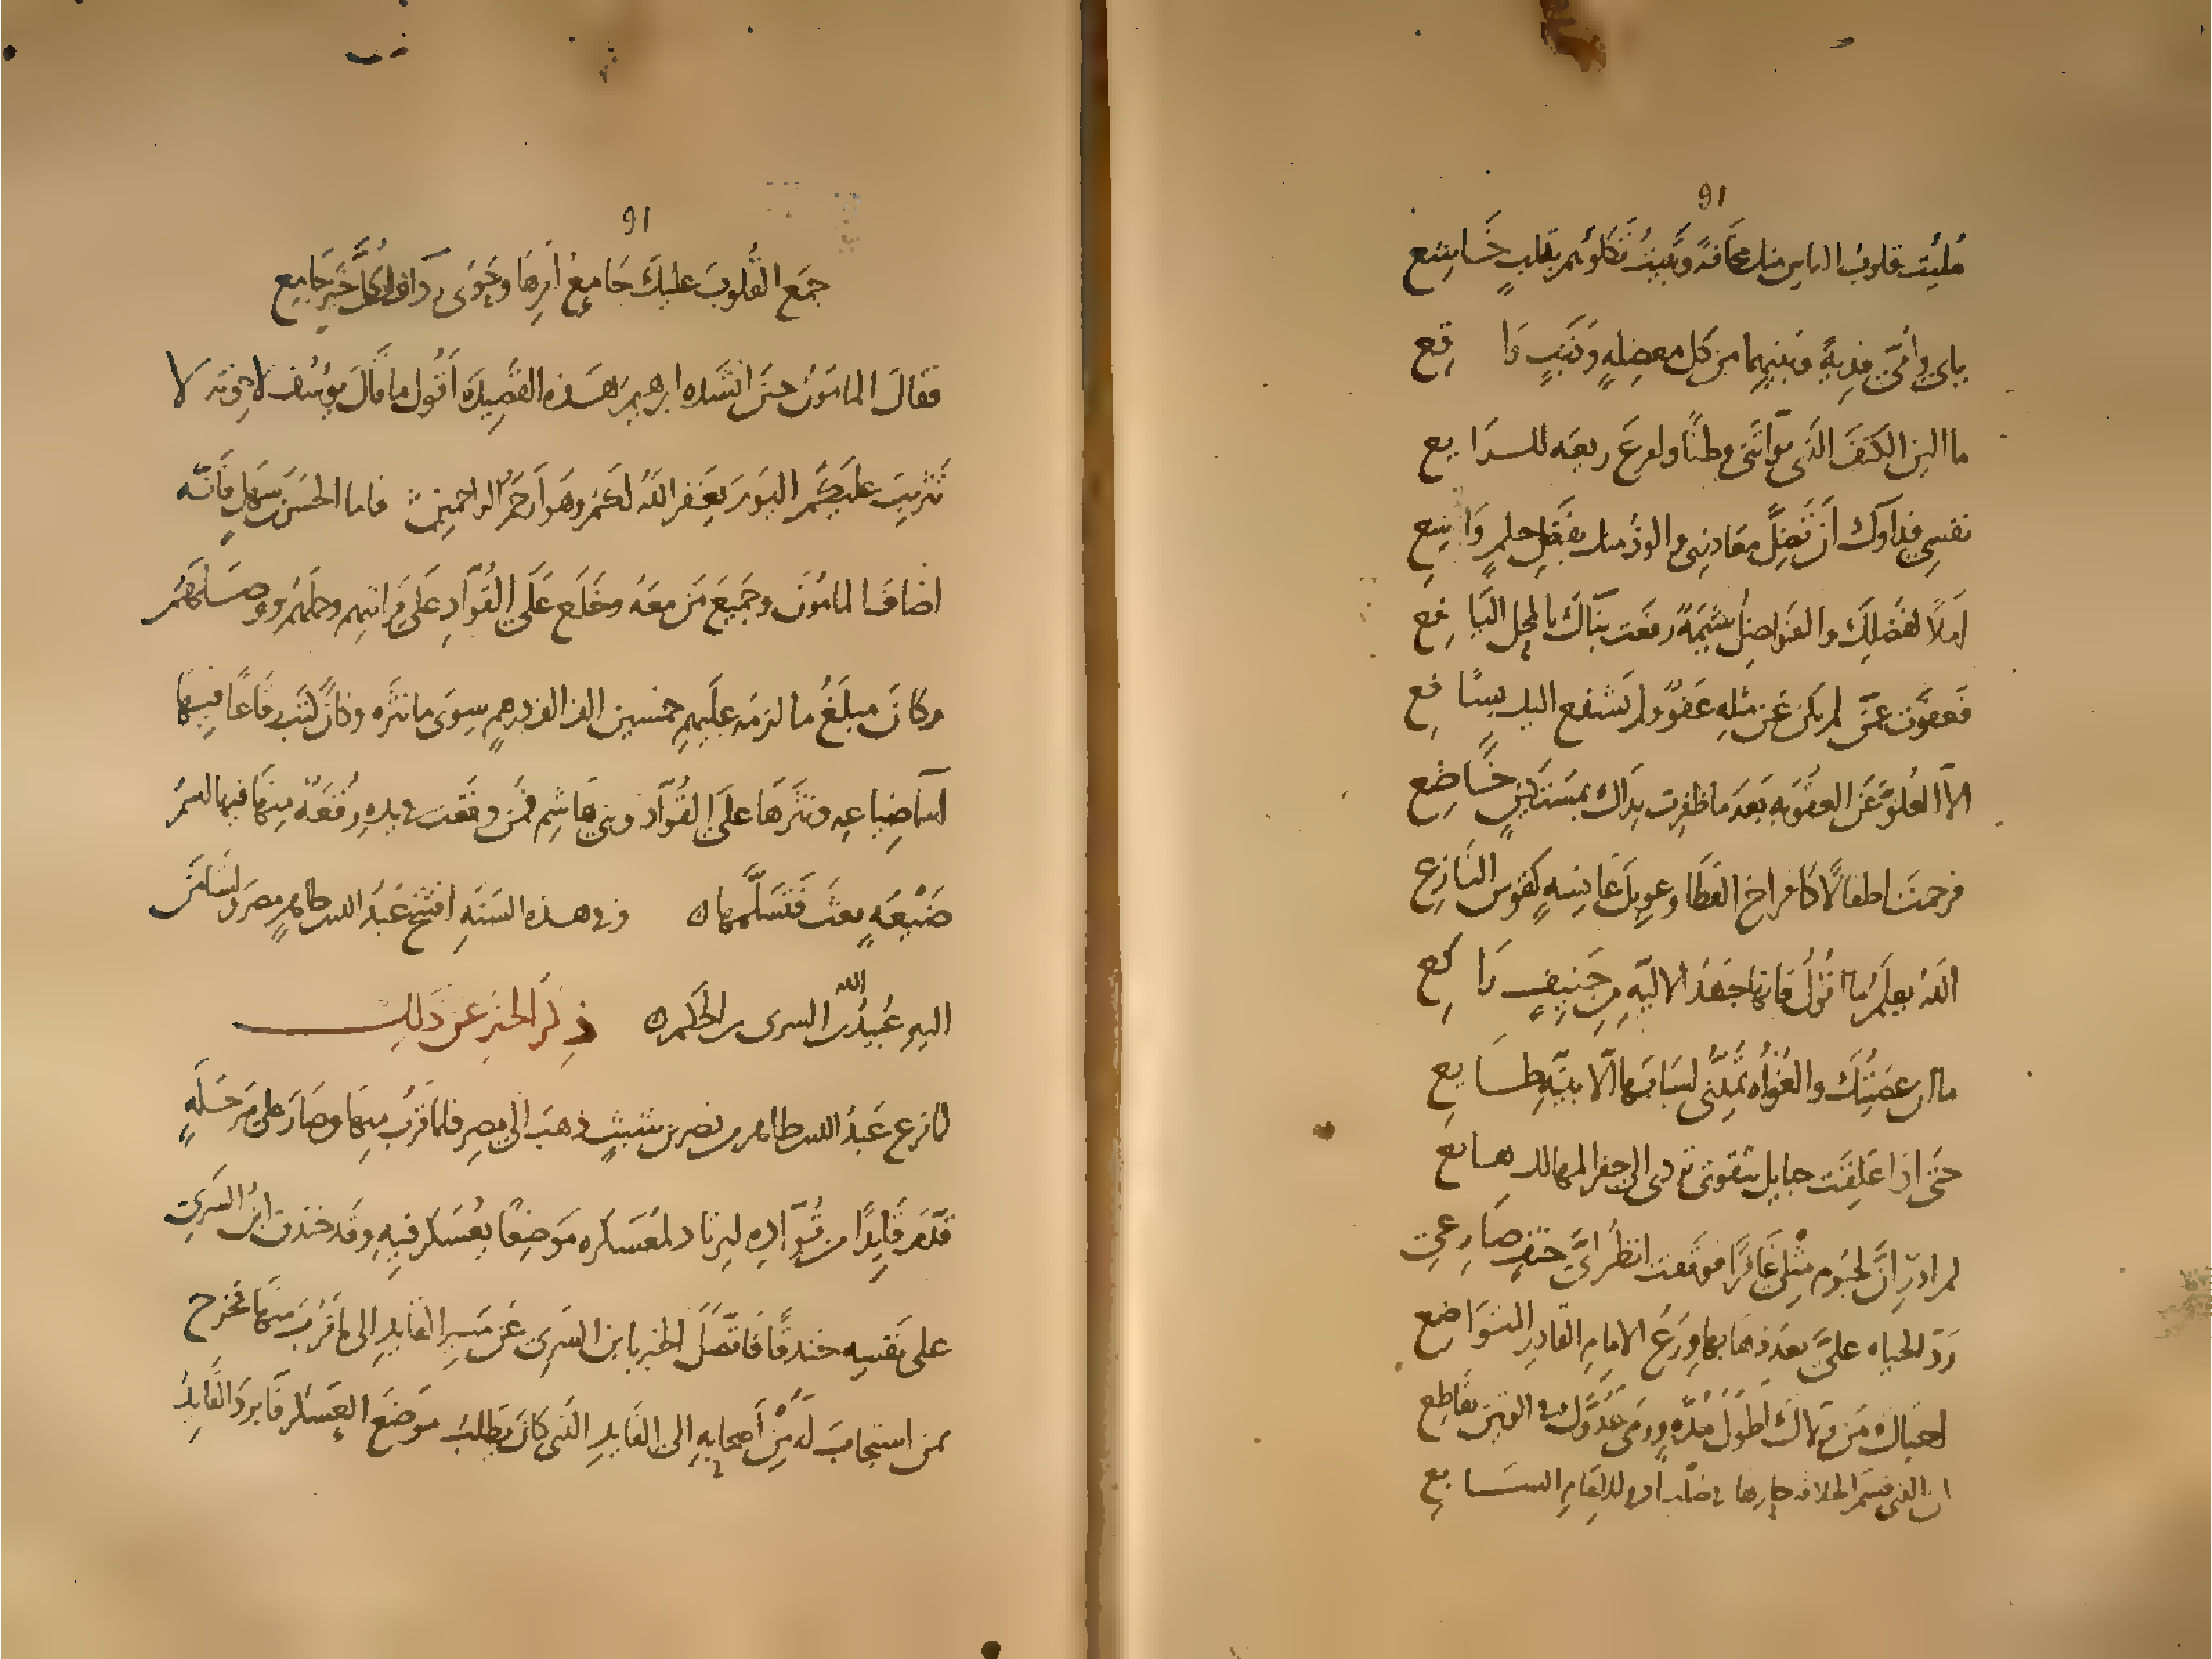 91
مُلِئت قلوبُ الناسِ منك مخافةً وتبيتُ تكلؤهم بقلبٍ خَاشِعِ
بابي وأمّي فِديةً وبنيهما من كل معضِلهٍ ورَيبٍ وَاقِعِ
ما الين الكنفَ الذي بوّأتني وطنًا وامرعَ ربعَه للراتِعِ
نفسي فداوك أن تضِلَّ معاذيري والوذُ منك بفضلِ حِلمٍ وَاسِعِ
أملاً لفضلِكَ والفواضِلُ شيمَةٌ رفعت بنَاكَ بالمحلّ اليَافِعِ
فعفوت عمّن لم يكن عن مثلِهِ عَفوٌ ولم يَشفع اليك بشَافِعِ
الّا العُلوَّ عَن العقوبَهِ بعدَ ما ظفِرت يداك بمستكينٍ خَاضِعِ
فرحمتَ اطفالاً كافراخ القَطَا وعويلَ عَانسهٍ كقوس النَازِعِ
اللهُ يعلَمُ ما أقُولُ فانها جهدُ الاليّهِ من حَنِيفٍ رَاكِعِ
ما ان عصيتُكَ والغُواه تمُدُّني اسبَابَها الّا بنيّةِ طَايِعِ
حتى اذا عَلِقَت حبايل شقوتي بردى الى حفر المهالك هايعِ
لم ادرِ انَّ لجُرم مثلي غَافرًا فوقفت انظُر ايَّ حتفٍ صَارِعي
رَدّ الحياه عليَّ بعد ذهابها وَرَعُ الامامِ القادِرِ المتوَاضعِ
احياك من ولّاك أطول مُدّه ورمى عدُوّك في الوتين بقاطِعِ
ان الذي قسم الخلافه حازها في صلب ادم للامامِ السَابِعِ
91
جمَع القُلوبَ عليكَ جَامِعُ أمرِهَا وحَوَى رداؤك كلَّ خَيرٍ جَامِعِ
فقالَ المامون حين انشده ابرهيم هذه القصِيدَه أقُول ما قالَ يوسُف لاخوته لا
تثريبَ عليكُم اليَومَ يغفر اللهُ لكم وهو أرحَمُ الراحمين فاما الحسَن بن سَهل فانّه
اضافَ المامُونَ وجَميعَ مَن معَه وخَلَع عَلَى القُوّادِ عَلى مَراتبِهم وحملَهُم ووصلَهُم
وكانَ مبلَغُ ما لزمَه عليهِم خمسين الف الف درهمٍ سِوَى ما نثرَه وكان كتَب رقاعًا فيها
أسمآ ضياعِه ونثَرَهَا علَى القُوّاد وبني هَاشِم فمن وقعَت في يدِهِ رُقعَةٌ منها فيها اسمُ
ضَيْعَهٍ بعثَ فتسَلّمها ه وفي هذه السنَهِ افتتح عَبدُ الله بن طاهرٍ مِصرَ واستامَن
اليهِ عُبيدُ الله بن السرى بن الحَكم ه ذِكرُ الخبرِ عن ذَلك
لما فرغ عَبدُ الله بن طاهر من نصر بن شبثٍ ذهبَ الى مِصر فلما قرُبَ منها وصَارَ على مَرحَلَهٍ
قَدّمَ قايِدًا من قُوّادِه ليرتاد لمُعَسكره مَوضِعًا يعُسَكر فيهِ وقد خندقَ ابنُ السَرِيّ
على نفسِه خندقًا فاتّصَلَ الخبر بابن السَرِي عَن مَسِيرِ القايدِ الى ما قرُبَ منها فخرج
بمن استجابَ لَهُ مِن أصحابِهِ الى القايدِ الذي كانَ يَطلبُ موَضعَ العسكر فابردَ القَايِدُ